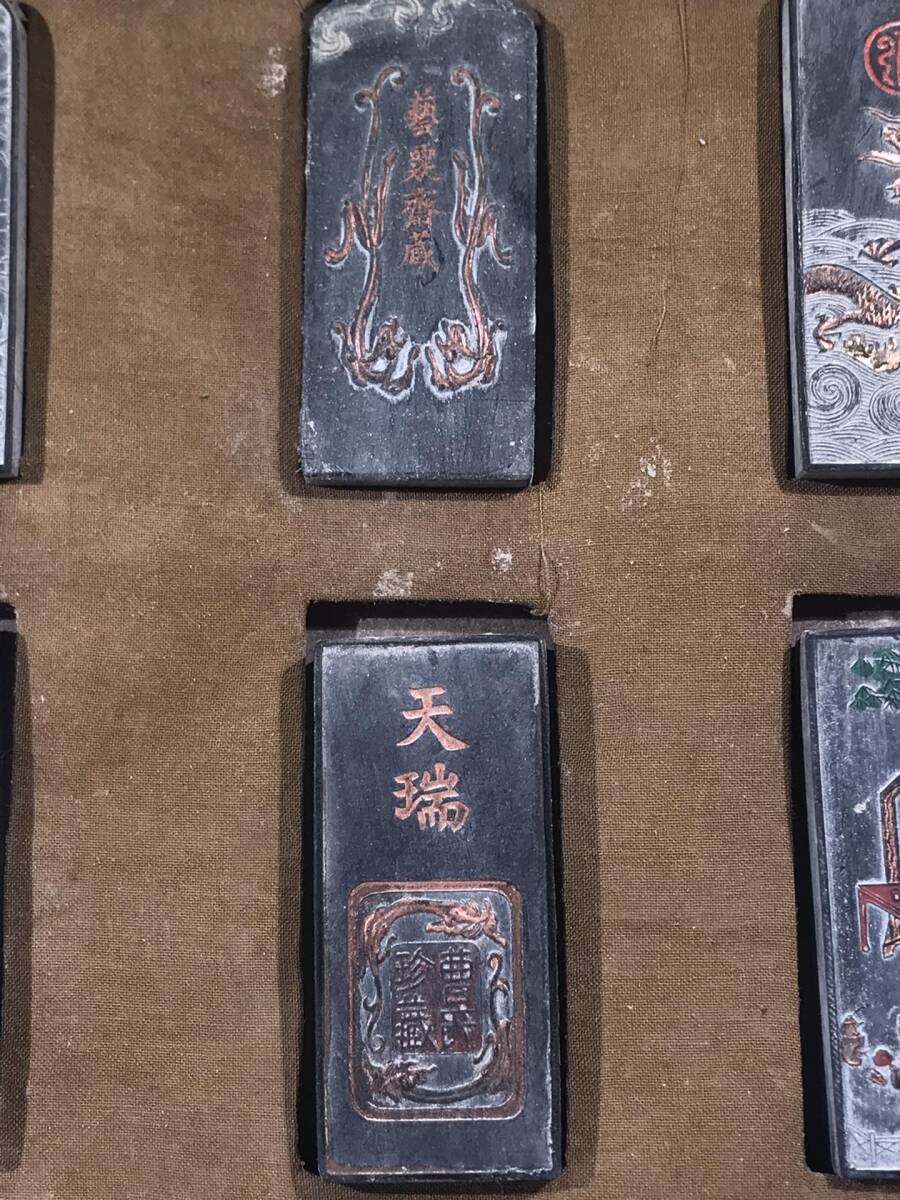 藝粟齋藏
天瑞
曹氏
珍藏